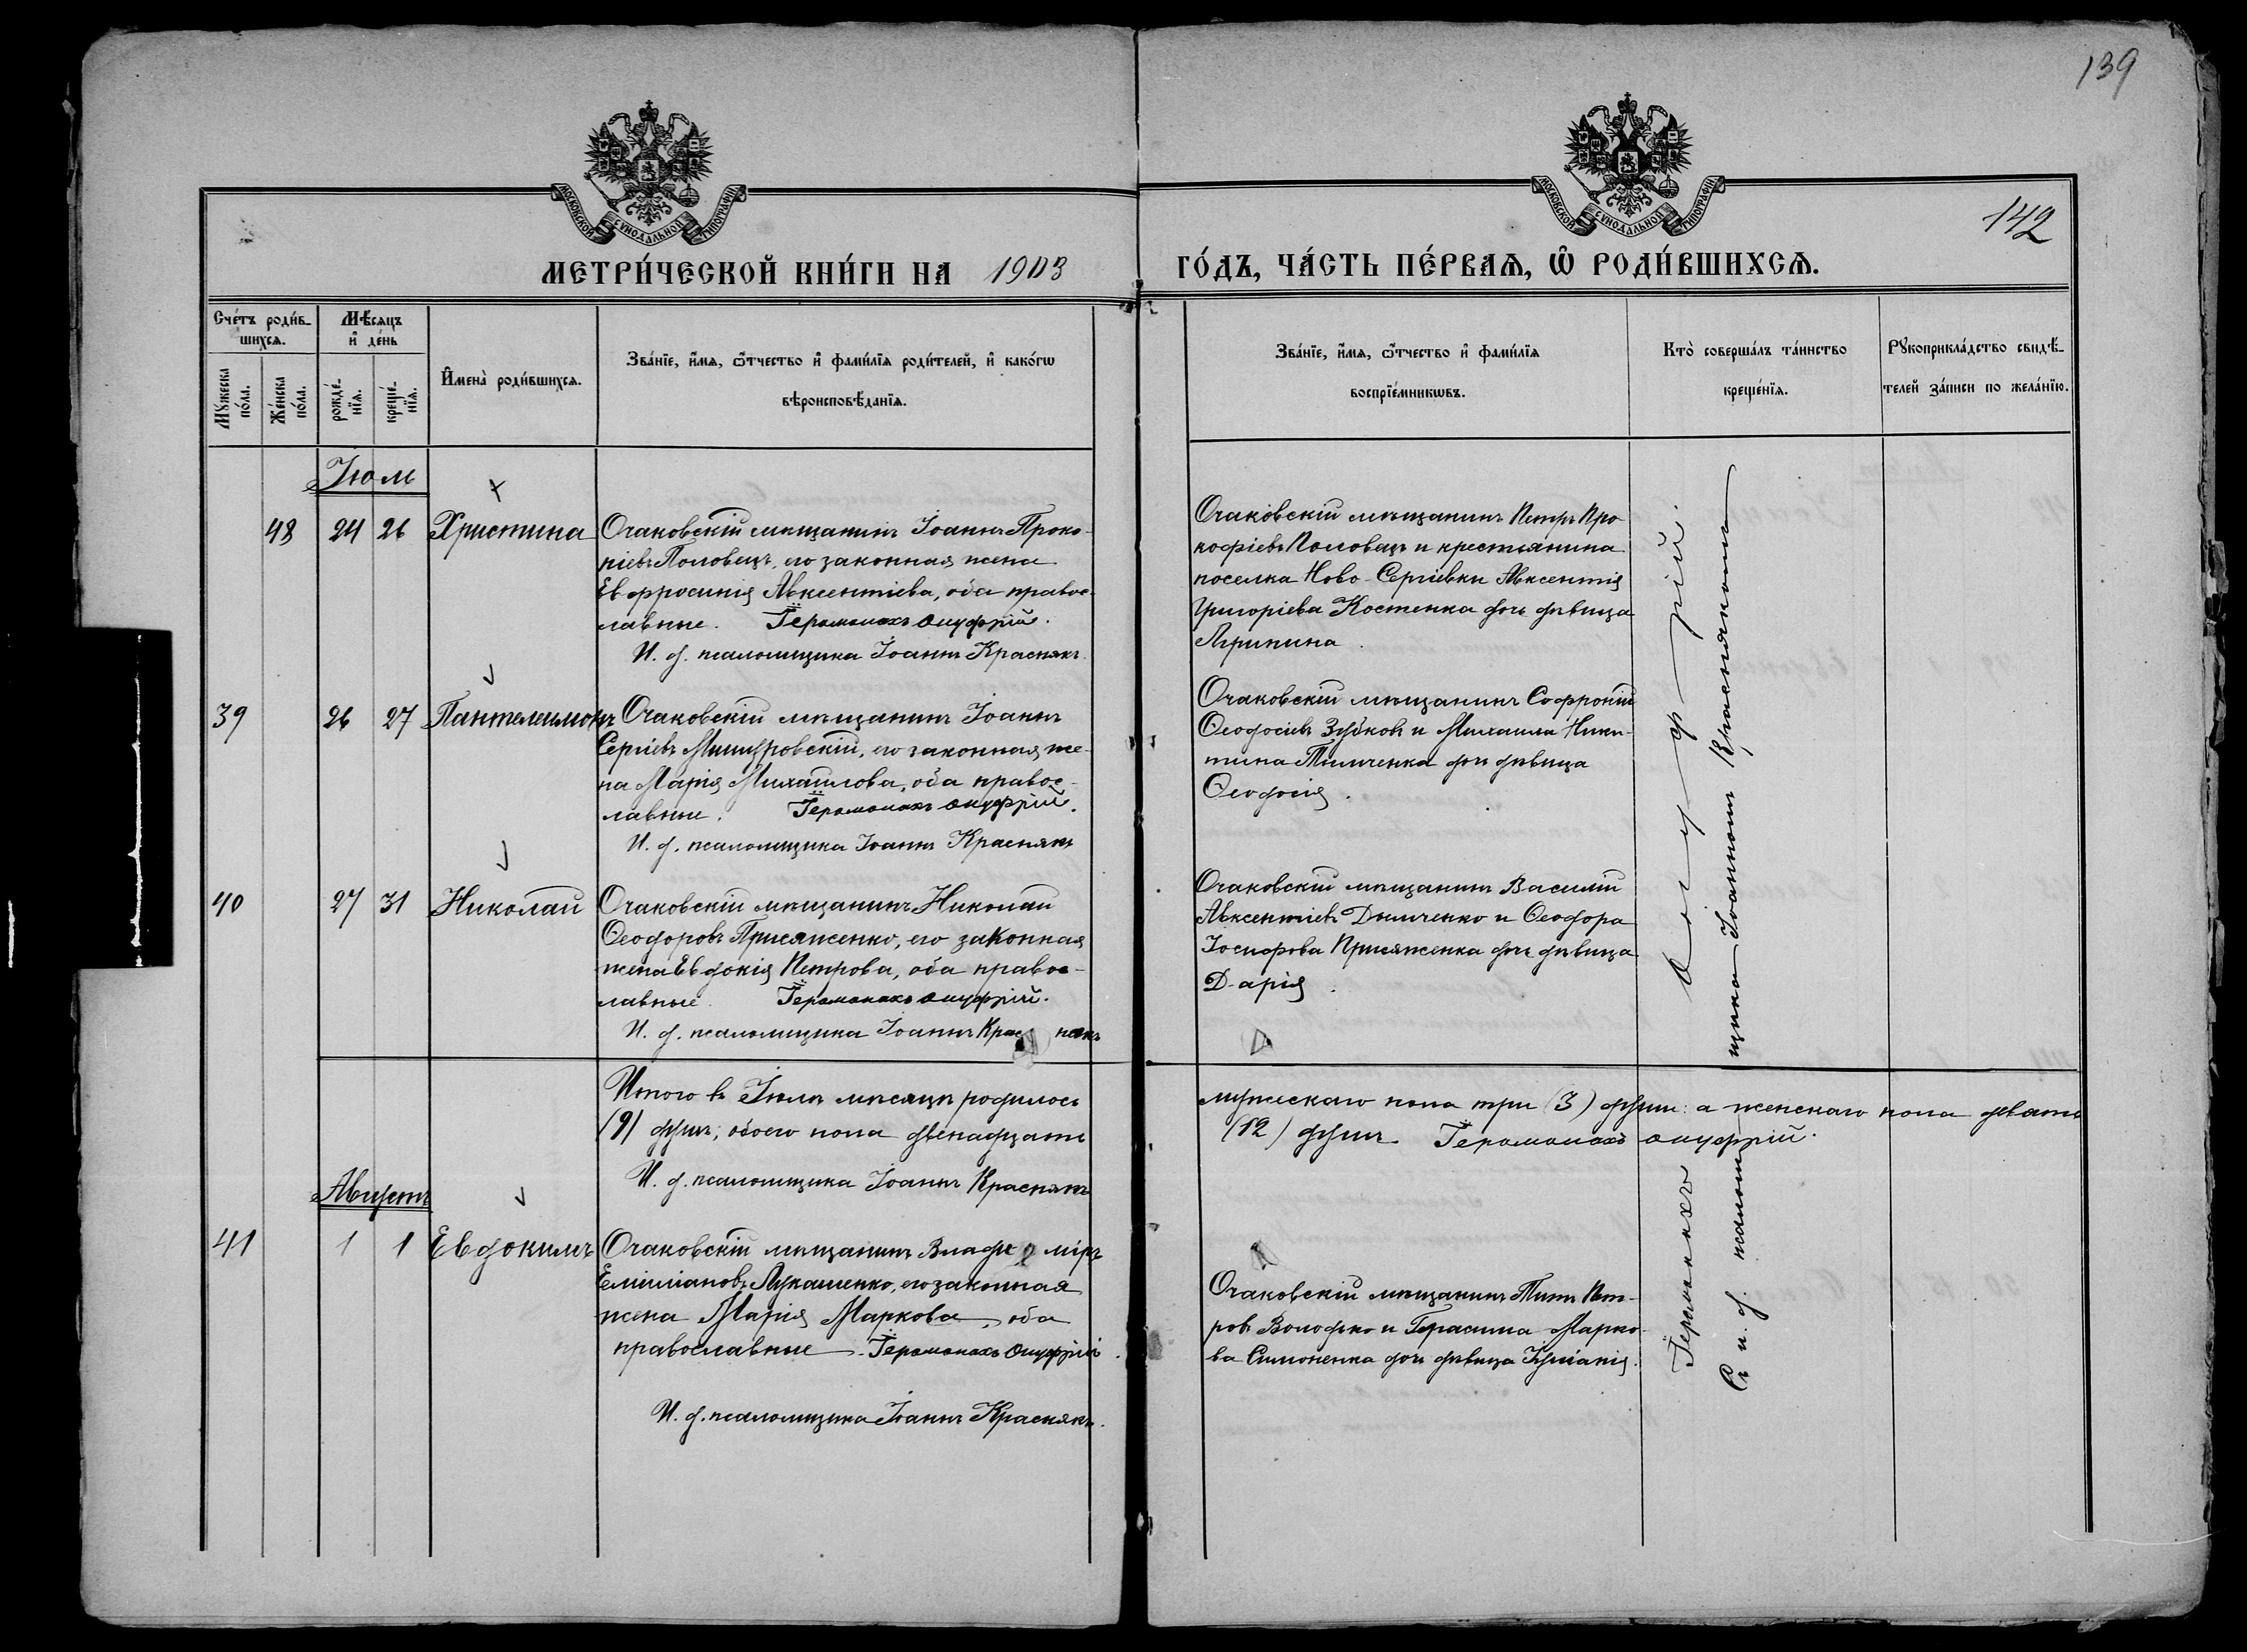 139
142
МОСКОВСКОЙ СѴНОДАЛЬНОЙ ТИПОГРАФІИ
МОСКОВСКОЙ СѴНОДАЛЬНОЙ ТИПОГРАФІИ
МЕТРИ́ЧЕСКОЙ КНИ́ГИ НА 1903 ГО́ДЪ, ЧА́СТЬ ПЕ́РВАѦ, Ѡ҆ РОДИ́ВШИХСѦ.
Сче́тъ роди́в-
шихсѧ.
Мꙋжеска по́ла.
Же́нска по́ла.
Мѣ́сѧцъ и҆ де́нь
рожде́-
нїѧ.
креще́-
нїѧ.
И҆мена̀ роди́вшихсѧ.
Зва́нїе, и҆́мѧ, ѻ҆́тчество и҆ фами́лїѧ роди́телей, и҆ како́гѡ
вѣроисповѣ́данїѧ.
Зва́нїе, и҆́мѧ, ѻ҆́тчество и҆ фами́лїѧ
воспрїе́мникѡвъ.
Кто̀ соверша́лъ та́инство
креще́нїѧ.
Рꙋкоприкла́дство свидѣ́-
телей за́писи по жела́нїю.
Іюль
48 24 26 Христина
Очаковскій мѣщанинъ Іоаннъ Проко-
піевъ Половецъ, его законная жена
Евфросинія Авксентіева, оба правос-
лавные. Іеромонахъ Онуфрій.
И. д. псаломщика Іоаннъ Краснякъ.
Очаковскій мѣщанинъ Петръ Про-
кофіевъ Половецъ и крестьянина
поселка Ново-Сергіевки Авксентія
Григоріева Костенка дочь дѣвица
Агрипина.
39 26 27 Пантелеимонъ
Очаковскій мѣщанинъ Іоаннъ
Сергіевъ его законная же-
на Марія Михаилова, оба правос-
лавные. Іеромонахъ Онуфрій.
И. д. псаломщика Іоаннъ Краснякъ
Очаковскій мѣщанинъ Софроній
Ѳеодосіевъ Зубковъ и Михаила Ники-
тина Тимченка дочь дѣвица
Ѳеодосія.
40 27 31 Николай
Очаковскій мѣщанинъ Николай
Ѳеодоровъ Присяженко, его законная
жена Евдокія Петрова, оба правос-
лавные Іеромонахъ Онуфрій.
И. д. псаломщика Іоаннъ Краснякъ
Очаковскій мѣщанинъ Василій
Авксентіевъ Дымченко и Ѳеодора
Іосифова Присяженка дочь дѣвица
Дарія.
Итого въ Іюлѣ мѣсяцѣ родилось мужескаго пола три (3) души: а женскаго пола девять
(9) душъ, обоего пола двенадцать (12) душъ. Іеромонахъ Онуфрій.
И. д. псаломщика Іоаннъ Краснякъ
Августъ
41 1 1 Евдокимъ
Очаковскій мѣщанинъ Владиміръ
Емиліановъ Лукашенко, его законная
жена Марія Маркова, оба
православные. Іеромонахъ Онуфрій.
И. д. псаломщика Іоаннъ Краснякъ.
Очаковскій мѣщанинъ Титъ Пет-
ровъ Володько и Герасима Марко-
ва Симоненка дочь дѣвица Іуліанія.
Іеромонахъ Онуфрій.
Съ и. д. псаломщика Іоанномъ Краснякомъ